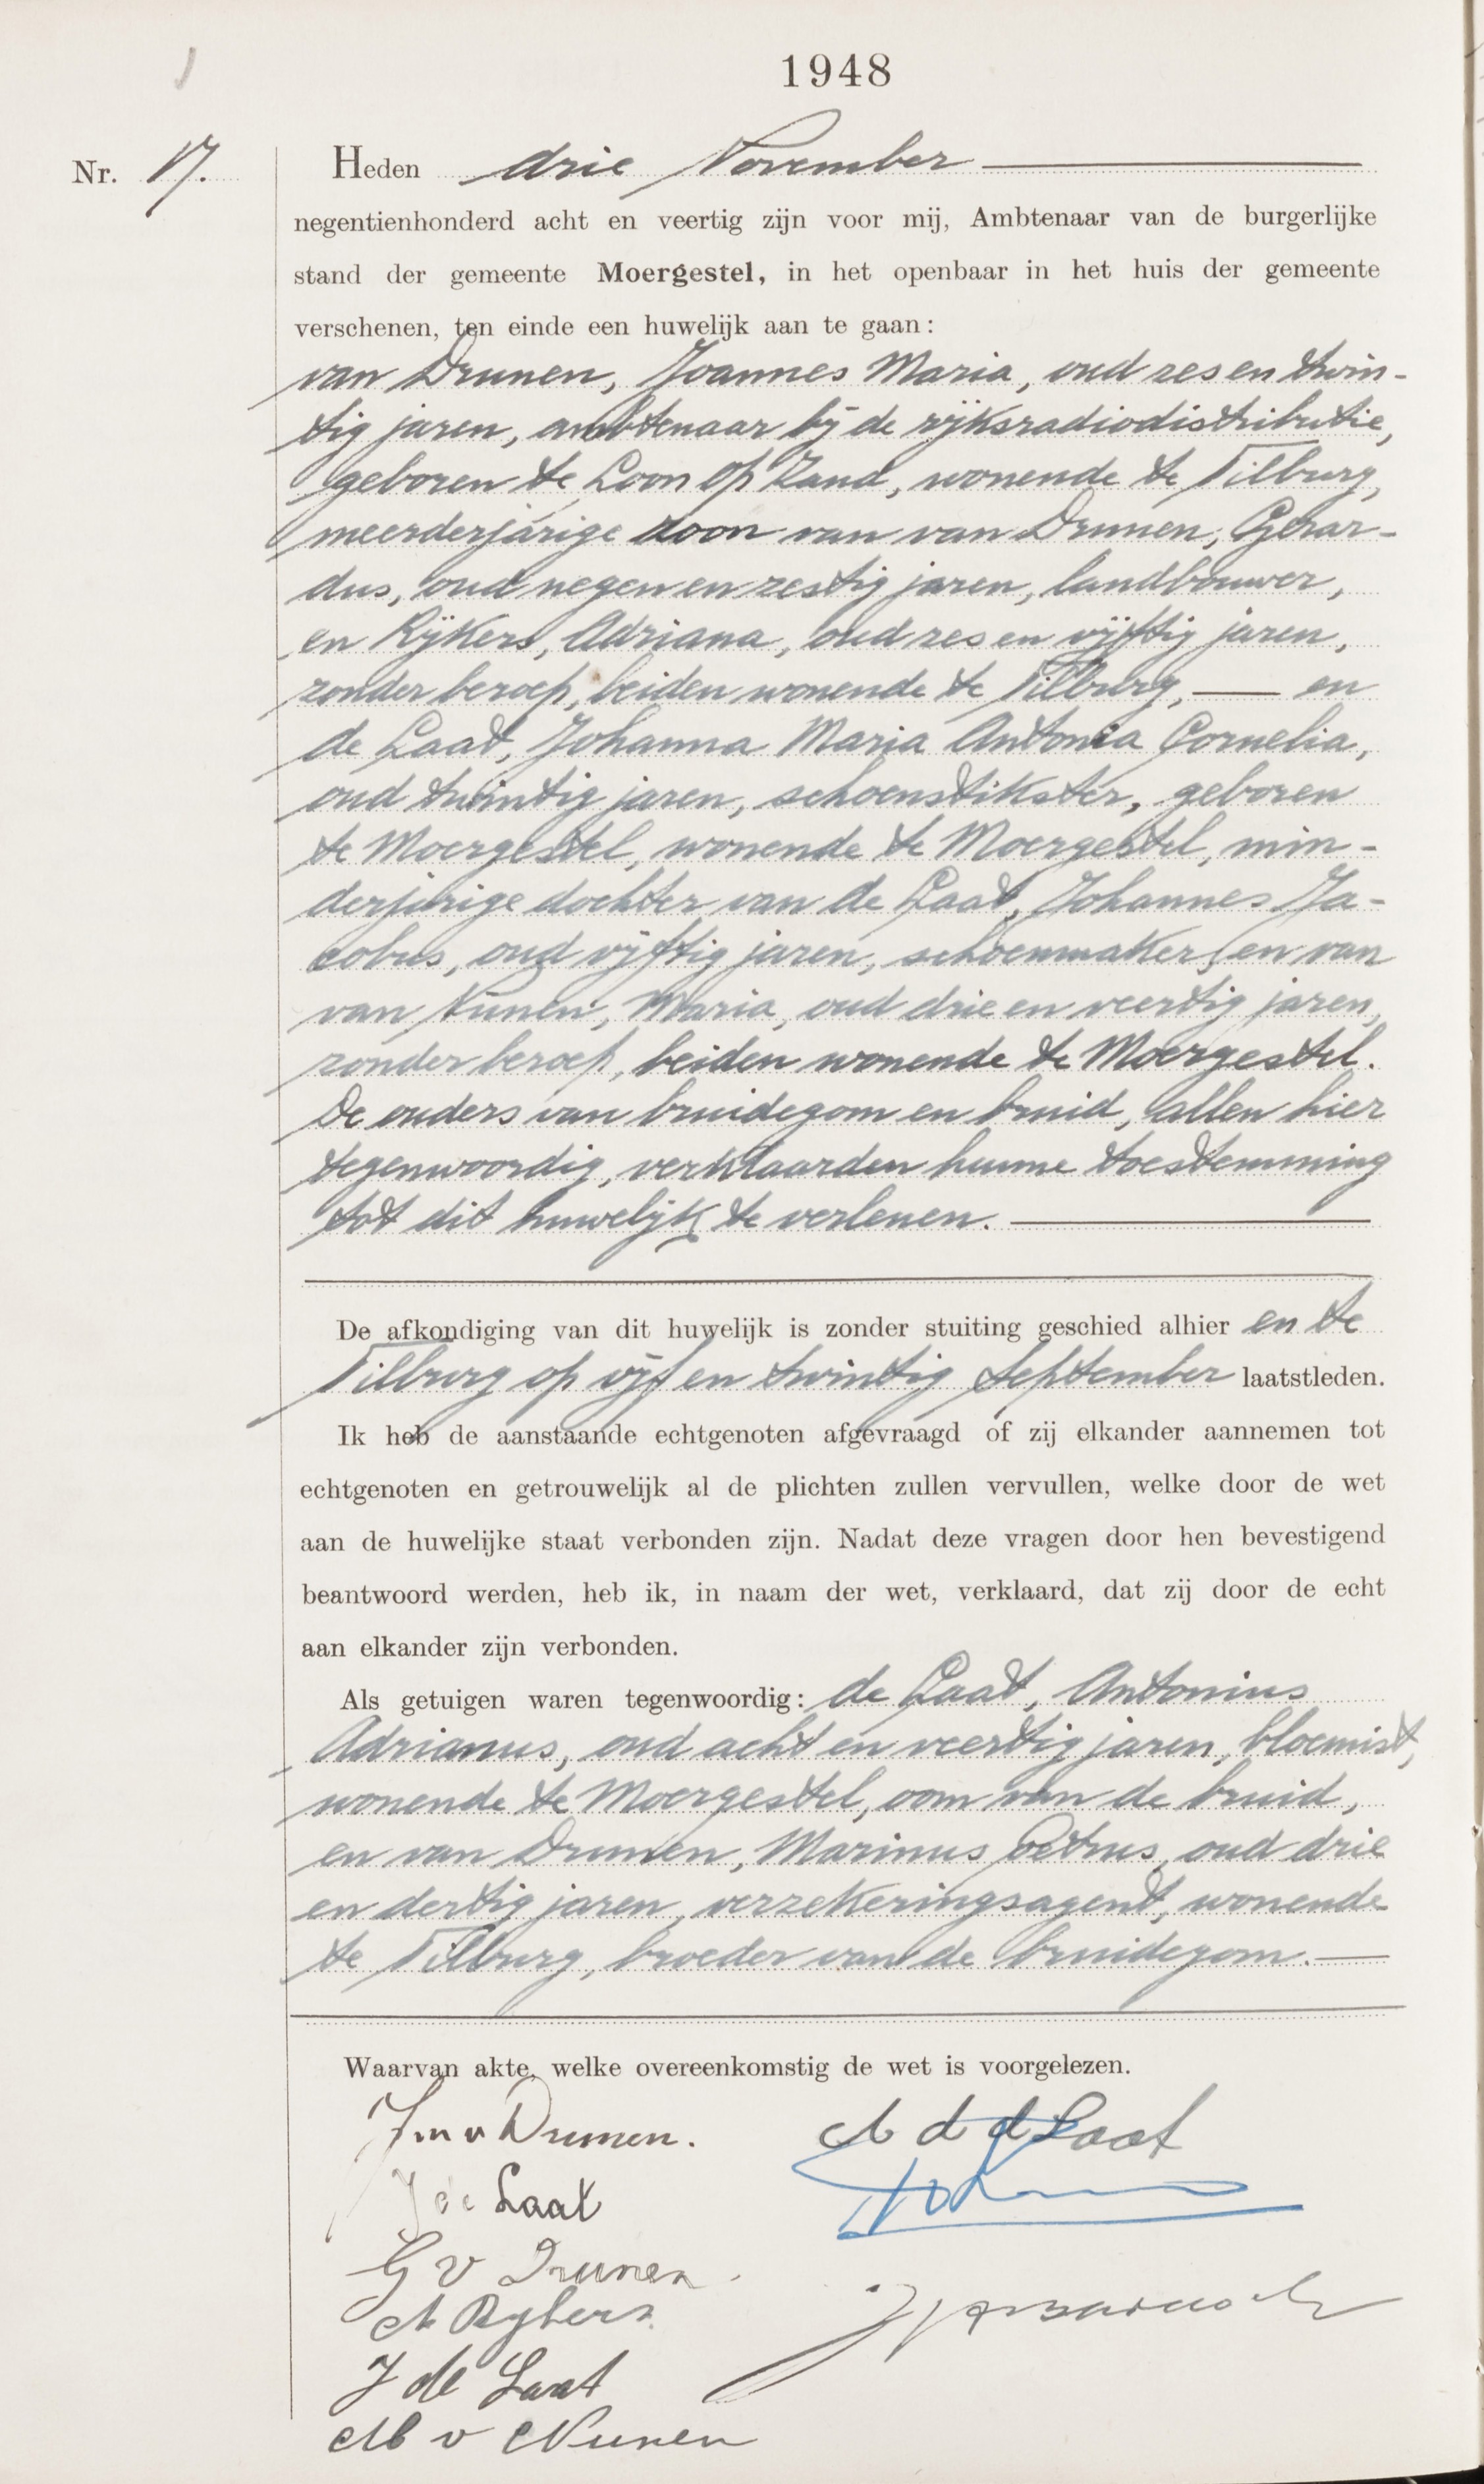 1948
Nr. 17.
Heden drie November
negentienhonderd acht en veertig zijn voor mij, Ambtenaar van de burgerlijke
stand der gemeente Moergestel, in het openbaar in het huis der gemeente
verschenen, ten einde een huwelijk aan te gaan:
van Drunen, Joannes Maria, oud zes en twin-
tig jaren, ambtenaar bij de rijksradiodistributie,
geboren te Loon op Zand, wonende te Tilburg,
meerderjarige zoon van van Drunen, Gerar-
dus, oud negen en zestig jaren, landbouwer,
en Rijkers, Adriana, oud zes en vijftig jaren,
zonder beroep, beiden wonende te Tilburg, en
de Laat, Johanna Maria Antonia Cornelia,
oud twintig jaren, schoenstikster, geboren
te Moergestel, wonende te Moergestel, min-
derjarige dochter van de Laat, Johannes Ja-
cobus, oud vijftig jaren, schoenmaker, en van
van Nunen, Maria, oud drie en veertig jaren,
zonder beroep, beiden wonende te Moergestel.
De ouders van bruidegom en bruid, allen hier
tegenwoordig, verklaarden hunne toestemming
tot dit huwelijk te verlenen.
De afkondiging van dit huwelijk is zonder stuiting geschied alhier en te
Tilburg op vijf en twintig September laatstleden.
Ik heb de aanstaande echtgenoten afgevraagd of zij elkander aannemen tot
echtgenoten en getrouwelijk al de plichten zullen vervullen, welke door de wet
aan de huwelijke staat verbonden zijn. Nadat deze vragen door hen bevestigend
beantwoord werden, heb ik, in naam der wet, verklaard, dat zij door de echt
aan elkander zijn verbonden.
Als getuigen waren tegenwoordig: de Laat, Antonius
Adrianus, oud acht en veertig jaren, bloemist,
wonende te Moergestel, oom van de bruid,
en van Drunen, Marinus Petrus, oud drie
en dertig jaren, verzekeringsagent, wonende
te Tilburg, broeder van de bruidegom.
Waarvan akte, welke overeenkomstig de wet is voorgelezen.
J m v Drunen.
J de Laat
G v Drunen.
A Rybers
J de Laat
M v Nunen
A d d Laat